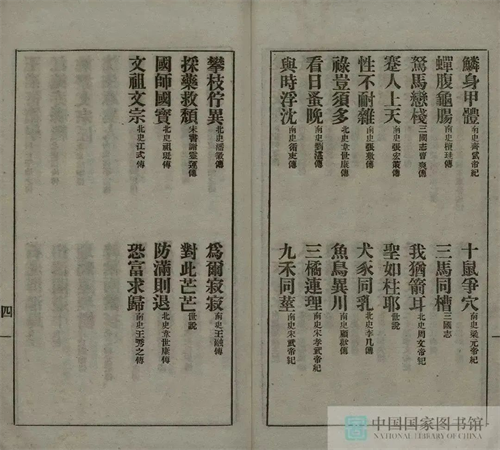 鱗身甲體南史齊武帝紀
十鼠爭穴南史梁元帝紀
蟬腹龜腸南史
三馬同槽三國志
駑馬戀棧三國志曹爽傳
我猶箭耳北史周文帝紀
蹇人上天南史張宏策傳
聖如柱耶世說
性不耐雜南史張敷傳
犬豕同乳北史李几傳
祿豈須多北史韋世康傳
魚鳥異川南史顧歡傳
看日蚤晚南史劉湛傳
三橘連理南史宋孝武帝紀
與時浮沈南史
九禾同莖南史宋武帝紀
攀枝佇異北史
爲爾寂寂南史王融傳
採藥救頹宋書謝靈運傳
對此芒芒世說
國師國寶北史祖珽傳
防滿則退北史韋世康傳
文祖文宗北史江式傳
恐富求歸南史王秀之傳
四
中国国家图书馆
NATIONAL LIBRARY OF CHINA